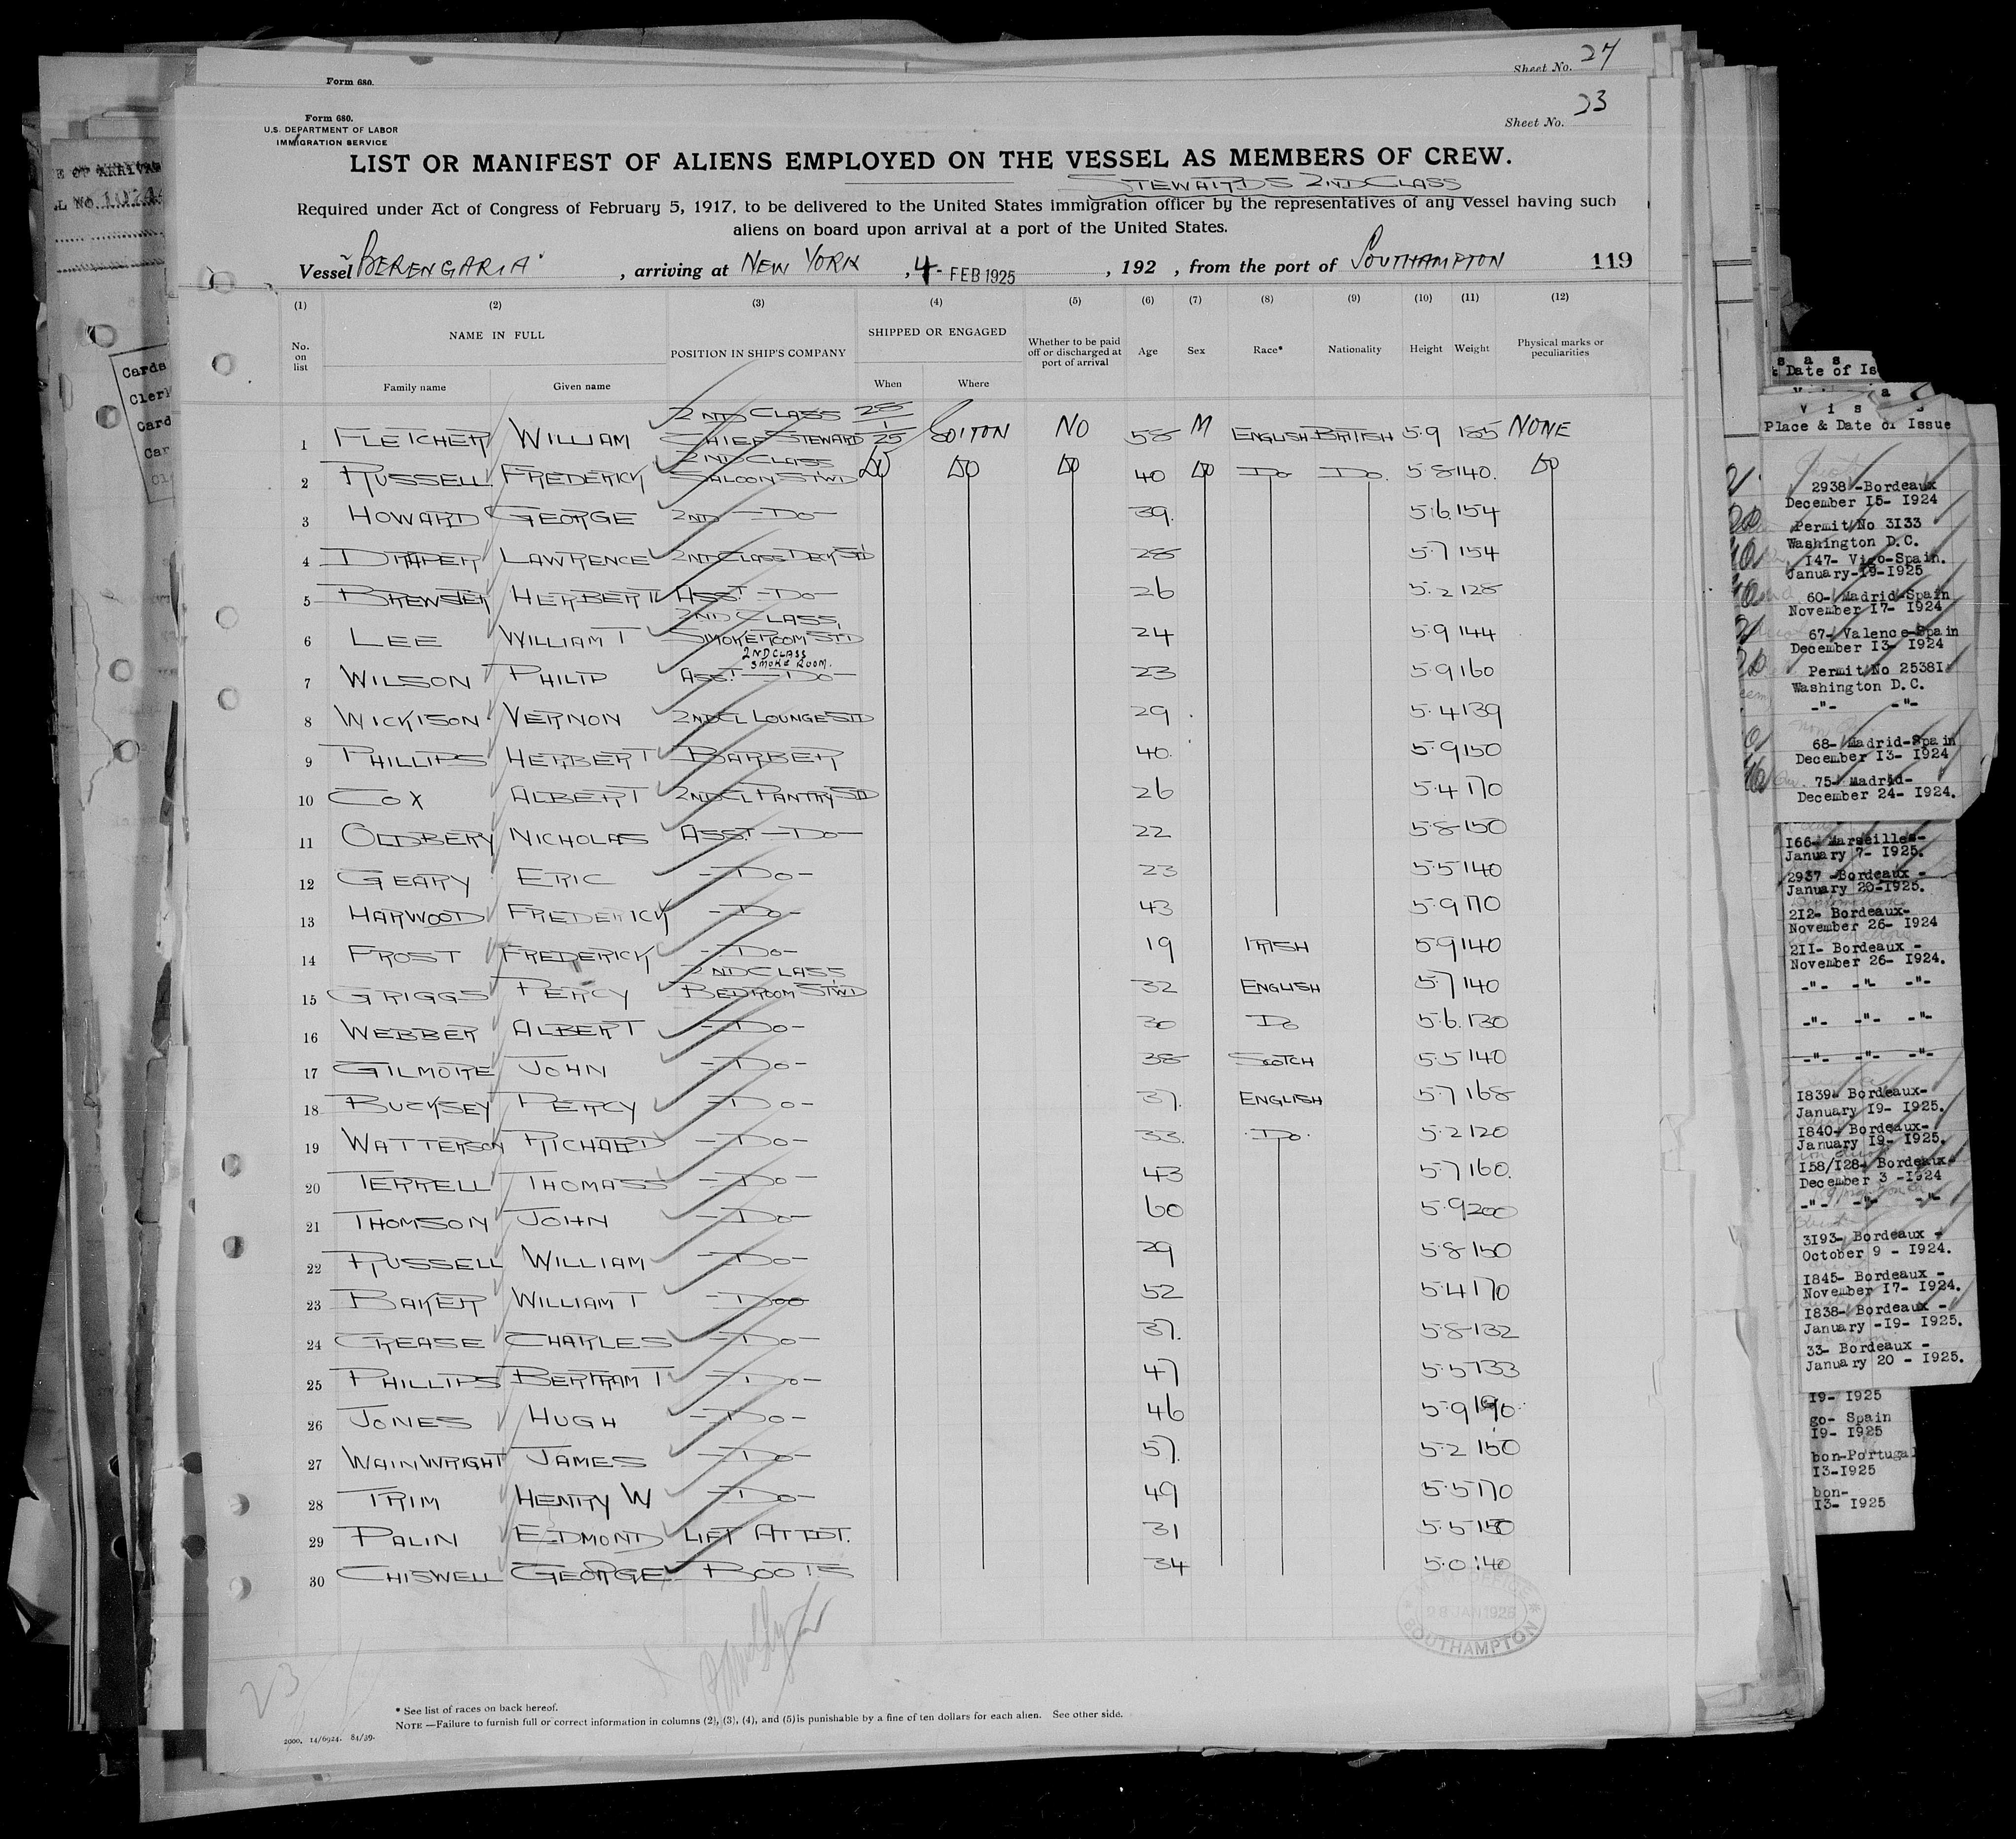 Sheet No. 27
Form 680.
Sheet No. 23
Form 680.
U.S. DEPARTMENT OF LABOR
IMMIGRATION SERVICE
LIST OR MANIFEST OF ALIENS EMPLOYED ON THE VESSEL AS MEMBERS OF CREW.
STEWARDS 2ND CLASS
Required under Act of Congress of February 5, 1917, to be delivered to the United States immigration officer by the representatives of any vessel having such
aliens on board upon arrival at a port of the United States.
Vessel BERENGARIA, arriving at NEW YORK, 4- FEB 1925, 192 , from the port of SOUTHAMPTON 119
(1) (2) (3) (4) (5) (6) (7) (8) (9) (10) (11) (12)
No. on list NAME IN FULL POSITION IN SHIP'S COMPANY SHIPPED OR ENGAGED Whether to be paid off or discharged at port of arrival Age Sex Race* Nationality Height Weight Physical marks or peculiarities
Family name Given name When Where
1 FLETCHER WILLIAM 2ND CLASS CHIEF STEWARD 28/1/25 SOITON NO 58 M ENGLISH BRITISH 5.9 185 NONE
2 RUSSELL FREDERICK 2ND CLASS SALOON STWD DO DO DO 40 DO DO DO. 5.8 140. DO
3 HOWARD GEORGE 2ND -DO- 39. 5.6. 154
4 DRAPER LAWRENCE 2ND CLASS DECK STD 28 5.7 154
5 BREWSTER HERBERT ASST -DO- 26 5.2 128
6 LEE WILLIAM T 2ND CLASS SMOKEROOM STD 24 5.9 144
7 WILSON PHILIP ASST -DO- 2ND CLASS SMOKE ROOM. 23 5.9 160
8 WICKISON VERNON 2ND CL LOUNGE STD 29 5.4 139
9 PHILLIPS HERBERT BARBER 40. 5.9 150
10 COX ALBERT 2ND CL PANTRY STD 26 5.4 170
11 OLDSBERY NICHOLAS ASST -DO- 22 5.8 150
12 GEARY ERIC -DO- 23 5.5 140
13 HARWOOD FREDERICK -DO- 43 5.9 170
14 FROST FREDERICK -DO- 19 IRISH 5.9 140
15 GRIGGS PERCY 2ND CLASS BEDROOM STWD 32 ENGLISH 5.7 140
16 WEBBER ALBERT -DO- 30 DO 5.6. 130
17 GILMORE JOHN -DO- 38 SCOTCH 5.5 140
18 BUCKSEY PERCY -DO- 37. ENGLISH 5.7 168
19 WATTERSON RICHARD -DO- 33. DO. 5.2 120
20 TERRELL THOMAS -DO- 43 5.7 160.
21 THOMSON JOHN -DO- 60 5.9 200
22 RUSSELL WILLIAM -DO- 29 5.8 150
23 BAKER WILLIAM T -DO- 52 5.4 170
24 CREASE CHARLES -DO- 37. 5.8 132
25 PHILLIPS BERTRAM T -DO- 47 5.5 133
26 JONES HUGH -DO- 46 5.9
27 WAINWRIGHT JAMES -DO- 57. 5.2 150
28 TRIM HENRY W -DO- 49 5.5 170
29 PALIN EDMOND LIFT ATTDT. 31 5.5
30 CHISWELL GEORGE BOOTS 34 5.0 140
SOUTHAMPTON
23
* See list of races on back hereof.
NOTE —Failure to furnish full or correct information in columns (2), (3), (4), and (5) is punishable by a fine of ten dollars for each alien. See other side.
2000. 14/6924. 84/39.
Date of Is
Visa
Place & Date of Issue
2938 -Bordeaux
December 15- 1924
Permit No 3133
Washington D.C.
147- Vigo-Spain.
January-19-1925
60- Madrid-Spain
November 17- 1924
67- Valence-Spain
December 13- 1924
Permit No 25381
Washington D.C.
-"- -"-
68- Madrid-Spain
December 13- 1924
75- Madrid-
December 24- 1924.
166- Marseilles-
January 7- 1925.
2937 -Bordeaux -
January 20-1925.
212- Bordeaux-
November 26- 1924
211- Bordeaux -
November 26- 1924.
-"- -"- -"-
-"- -"- -"-
-"- -"- -"-
1839- Bordeaux-
January 19- 1925.
1840- Bordeaux-
January 19- 1925.
158/128- Bordeaux-
December 3 -1924
-"- -"- -"-
3193- Bordeaux -
October 9 - 1924.
1845- Bordeaux -
November 17- 1924.
1838- Bordeaux -
January -19- 1925.
33- Bordeaux -
January 20 - 1925.
19- 1925
go- Spain
19- 1925
bon-Portugal
13-1925
bon-
13- 1925
Carda
Cler
Card
Car